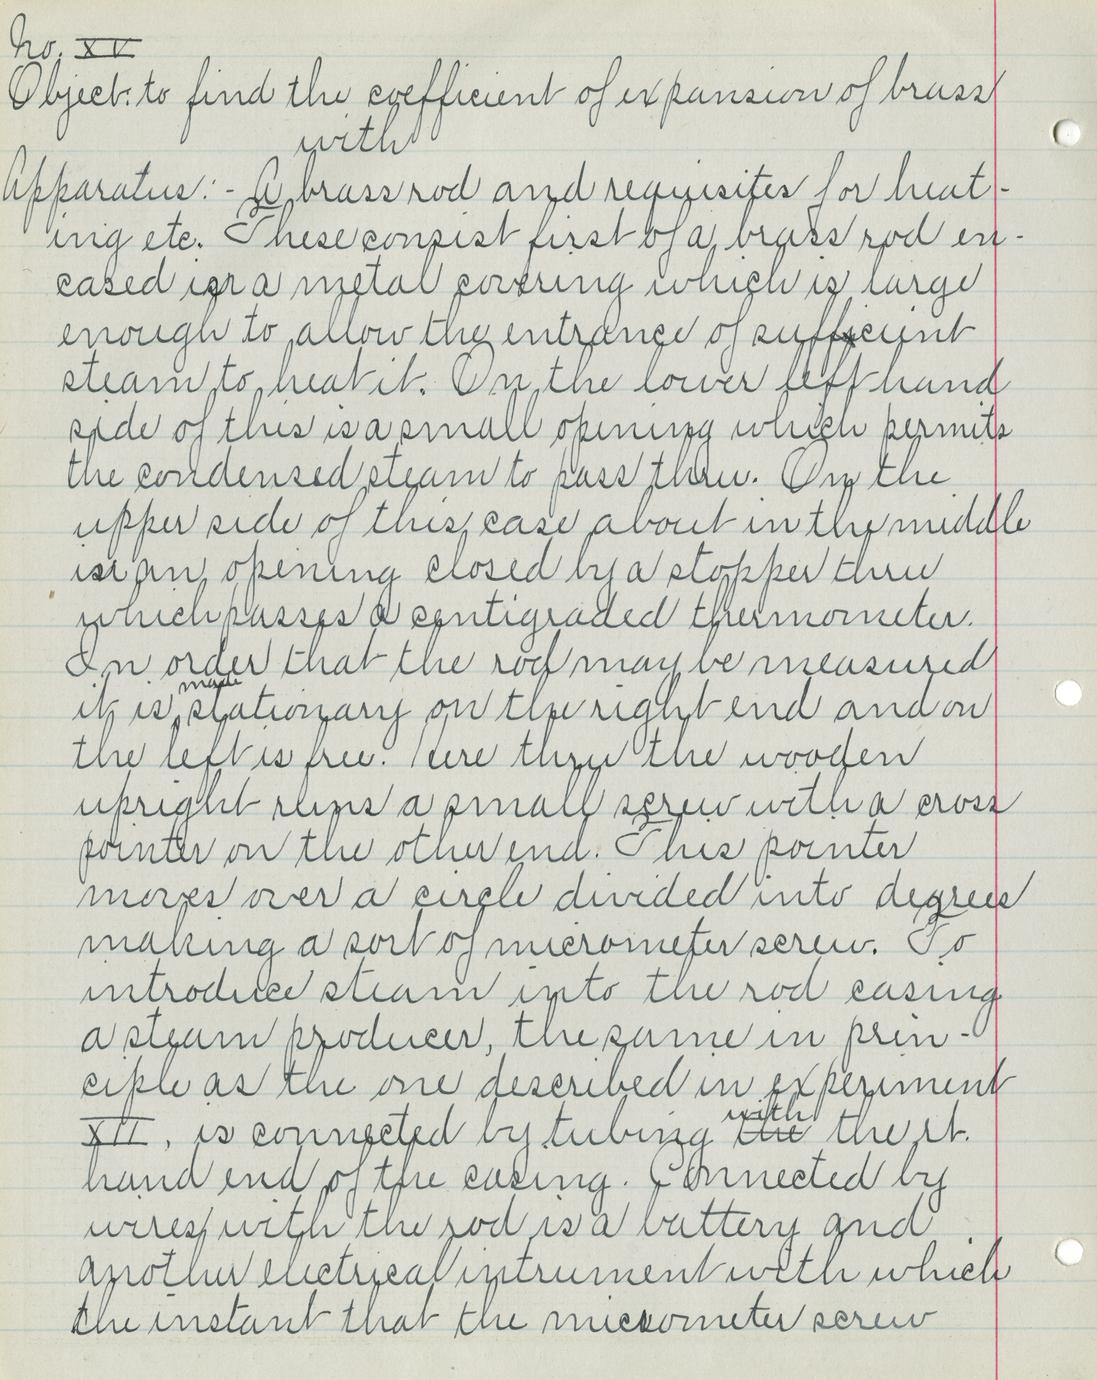 No. XV
Object: to find the coefficient of expansion of brass
with
Apparatus:- A brass rod and requisites for heat-
ing etc. These consist first of a brass rod en-
cased in a metal covering which is large
enough to allow the entrance of sufficient
steam to heat it. On the lower left hand
side of this is a small opening which permits
the condensed steam to pass thru. On the
upper side of this case about in the middle
is an opening closed by a stopper thru
which passes a centigraded thermometer.
In order that the rod may be measured
made
it is stationary on the right end and on
the left is free. Here thru the wooden
upright runs a small screw with a cross
pointer on the other end. This pointer
moves over a circle divided into degrees
making a sort of micrometer screw. To
introduce steam into the rod casing
a steam producer, the same in prin-
ciple as the one described in experiment
with
XII, is connected by tubing the the rt.
hand end of the casing. Connected by
wires with the rod is a battery and
another electrical intrument with which
the instant that the micrometer screw